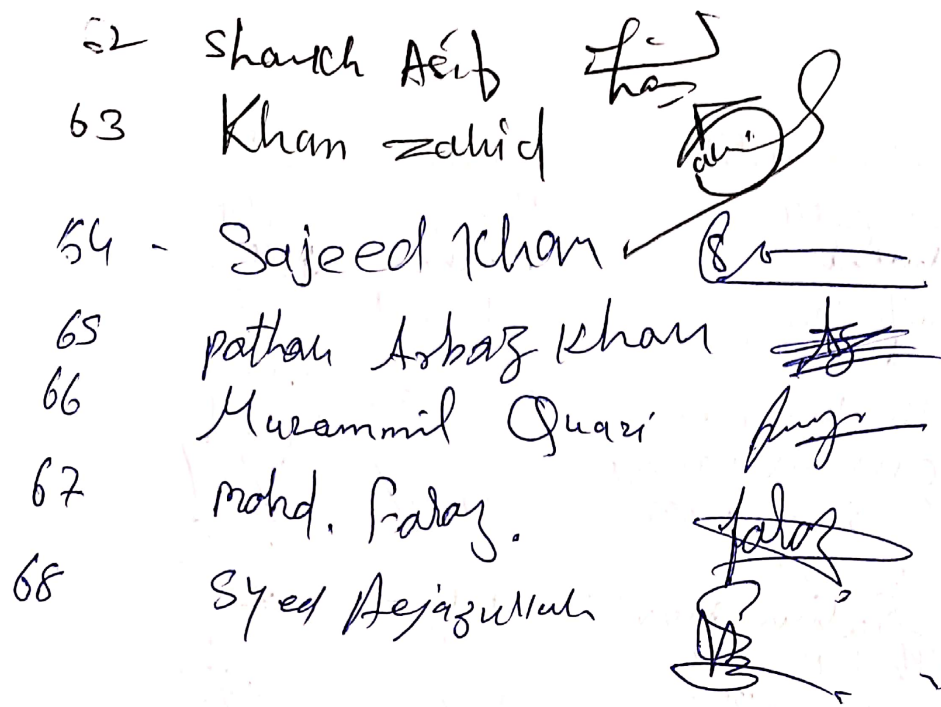 62 Shaikh Asif
63 Khan zahid
64 - Sajeed Khan
65 pathan Arbaz Khan
66 Muzammil Quazi
67 mohd. Faraz. faraz
68 Syed Aejazullah